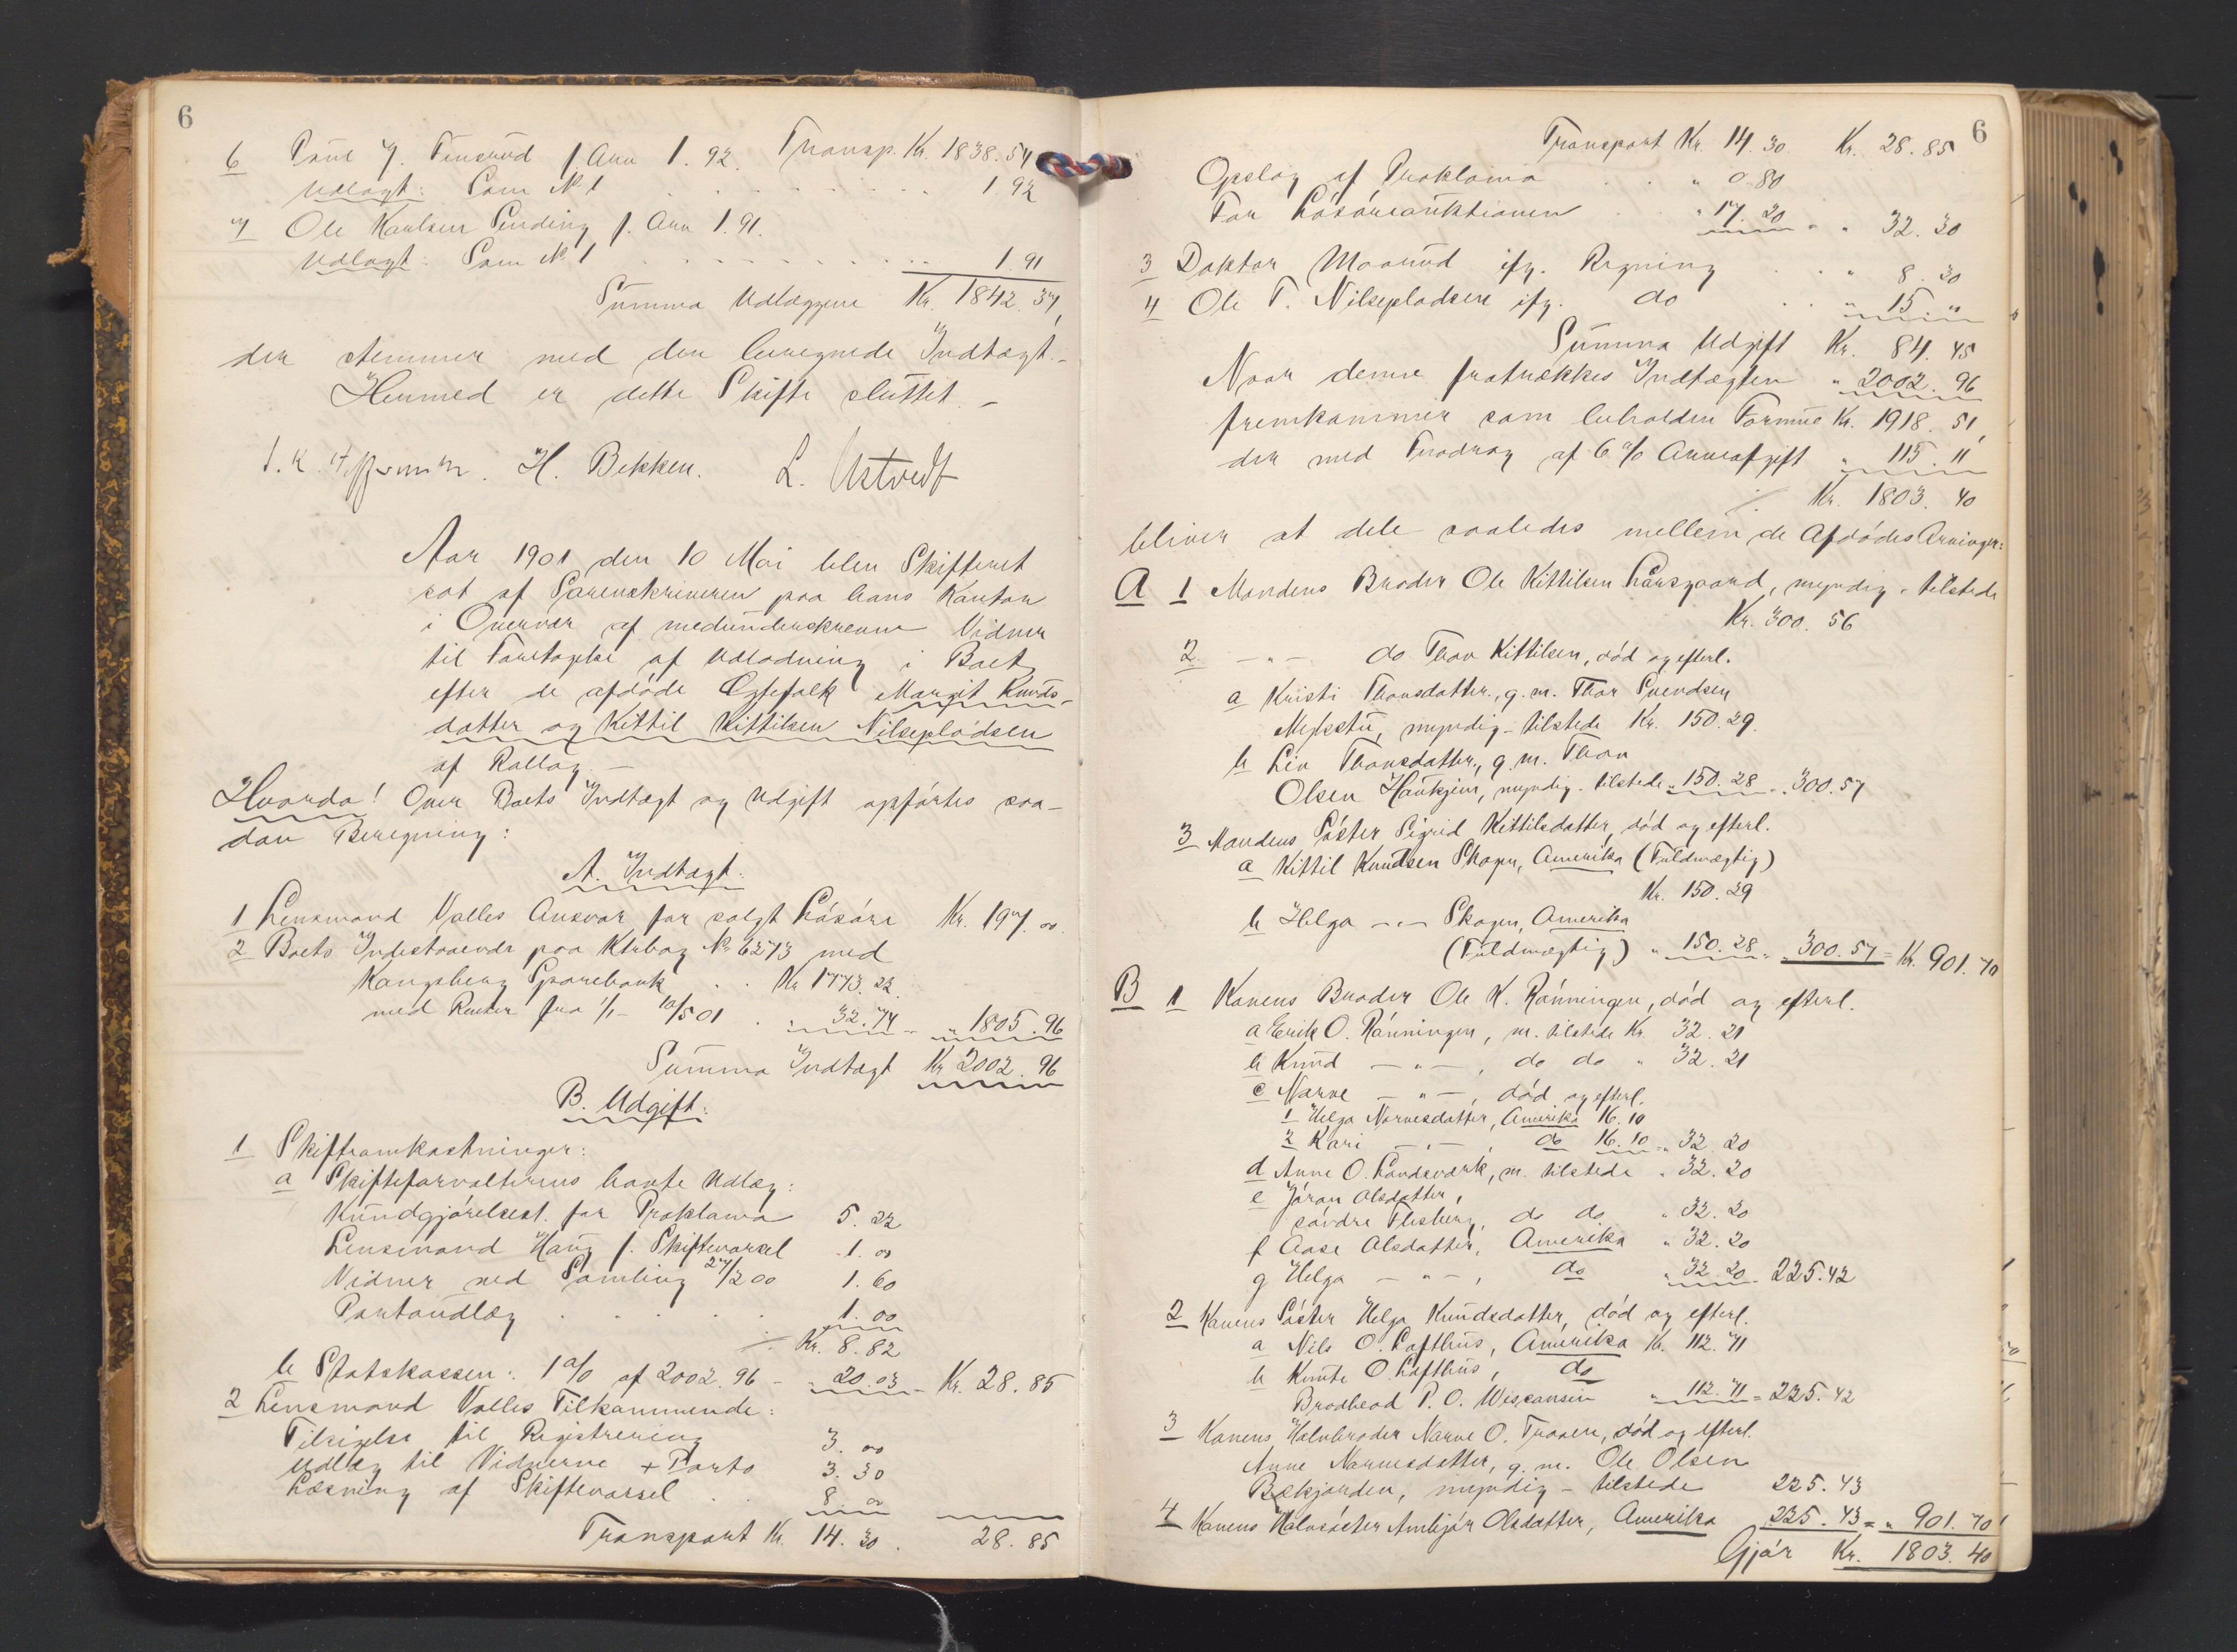 6
6 Paul J. Tinsrud f. Ann 1.92. Transp. Kr. 1838.54
Udlagt: Som No 1 . . . 1.92
7 Ole Knutsen f. Ann 1.91.
Udlagt: Som No 1 . . . 1.91
Summa Udlæggene Kr. 1842.37,
der stemmer med den beregnede Indtægt.-
Hermed er dette Skifte sluttet.-
H. Bekken. L. Ustvedt
Aar 1901 den 10 Mai blev Skifteret
sat af Sorenskriveren paa hans Kontor
i Overvær af medunderskrevne Vidner
til Foretagelse af Udlodning i Boet
efter de afdøde Egtefolk Margit Knuds-
datter og Kittil Kittilsen Nilsepladsen
af Rollag.-
Hvorda! Over Boets Indtægt og Udgift opførtes saa-
dan Beregning:
A. Indtægt.
1 Lensmand Valles Ansvar for solgt Løsøre Kr. 197.00.
2 Boets Indestaaende paa Ktrbog No 6273 med
Kongsberg Sparebank . . Kr 1773.22.
med Renter fra 1/1 - 10/5 01 . " 32.74 - " 1805.96
Summa Indtægt Kr 2002.96
B. Udgift:
1 Skifteomkostninger:
a Skifteforvalterens havte Udlæg:
Kundgjørelsest. for Proklama 5.22
Lensmand Haug f. Skiftevarsel 1.00
Vidner ved Samling 27/2 00 1.60
Portoudlæg . . . . 1.00
Kr. 8.82
b Statskassen: 1 % af 2002.96 - " 20.03 - Kr. 28.85
2 Lensmand Valles Tilkommende:
Tilsigelse til Registrering 3.00
Udlæg til Vidnerne + Porto 3.30
Læsning af Skiftevarsel . . 8.00
Transport Kr. 14.30. 28.85
6
Transport Kr. 14.30 Kr. 28.85
Opslag af Proklama . . " 0.80
For Løsøreauktionen . . " 17.20 - " 32.30
3 Doktor Moorud ifg. Regning . . " 8.30
4 Ole T. Nilsepladsen ifg. do . . " 15."
Summa Udgift Kr. 84.45
Naar denne fratrækkes Indtægten " 2002.96
fremkommer som beholden Formue Kr. 1918.51,
der med Fradrag af 6 % Arveafgift " 115.11
Kr. 1803.40
bliver at dele saaledes mellem de Afdødes Arvinger:
A 1 Mandens Broder Ole Kittilsen Larsgaard, myndig - tilstede
Kr. 300.56
2 - " - do Thov Kittilsen, død og efterl.
a Kristi Thovsdatter, g. m. Thor Svendsen
Myhstu, myndig - tilstede Kr. 150.29.
b Liv Thovsdatter, g. m. Thov
Olsen Haukjem, myndig - tilstede " 150.28 - " 300.57
3 Mandens Søster Sigrid Kittilsdatter, død og efterl.
a Kittil Knudsen Skogen, Amerika (Fuldmægtig)
Kr. 150.29
b Helga - " - Skogen, Amerika
(Fuldmægtig) " 150.28 - " 300.57 = Kr. 901.70
B 1 Konens Broder Ole K. Rønningen, død og efterl.
a Erik O. Rønningen, m. tilstede Kr. 32.21
b Knud - " - , do do " 32.21
c Narve - " - , død og efterl.
1 Helga Narvesdatter, Amerika 16.10
2 Kari - " - , do 16.10 " 32.20
d Anne O. Landsværk, m. tilstede " 32.20
e Jøran Olsdatter,
søndre Flesberg, do do " 32.20
f Aase Olsdatter, Amerika " 32.20
g Helga - " - , do " 32.20 - 225.42
2 Konens Søster Helga Knudsdatter, død og efterl.
a Nils O. Lofthus, Amerika Kr. 112.71
b Knute O. Lofthus, do
Brodhead P. O. Wisconsin " 112.71 = 225.42
3 Konens Halvbroder Narve O. Traaen, død og efterl.
Anne Narvesdatter, g. m. Ole Olsen
Bækjorden, myndig - tilstede 225.43
4 Konens Halvsøster Ambjør Olsdatter, Amerika 225.43 = " 901.70
Gjør Kr. 1803.40